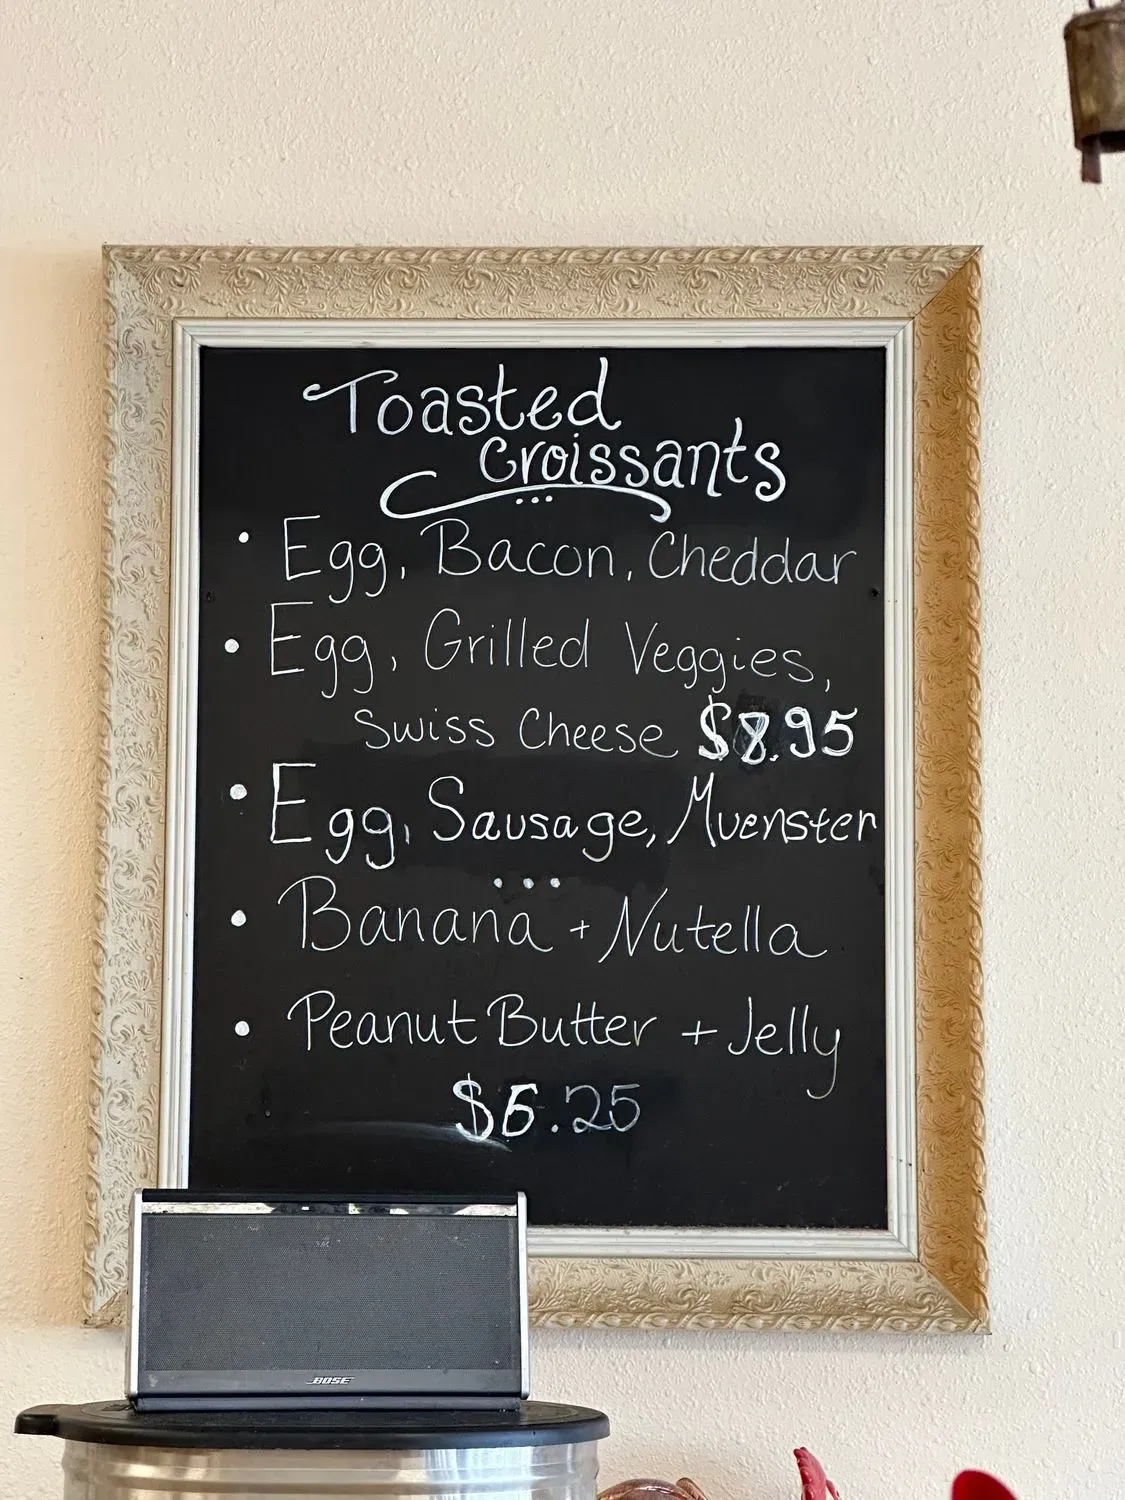 Toasted
Croissants
...
• Egg, Bacon, Cheddar
• Egg, Grilled Veggies,
Swiss Cheese $8.95
• Egg, Sausage, Muenster
...
• Banana + Nutella
• Peanut Butter + Jelly
$6.25
BOSE